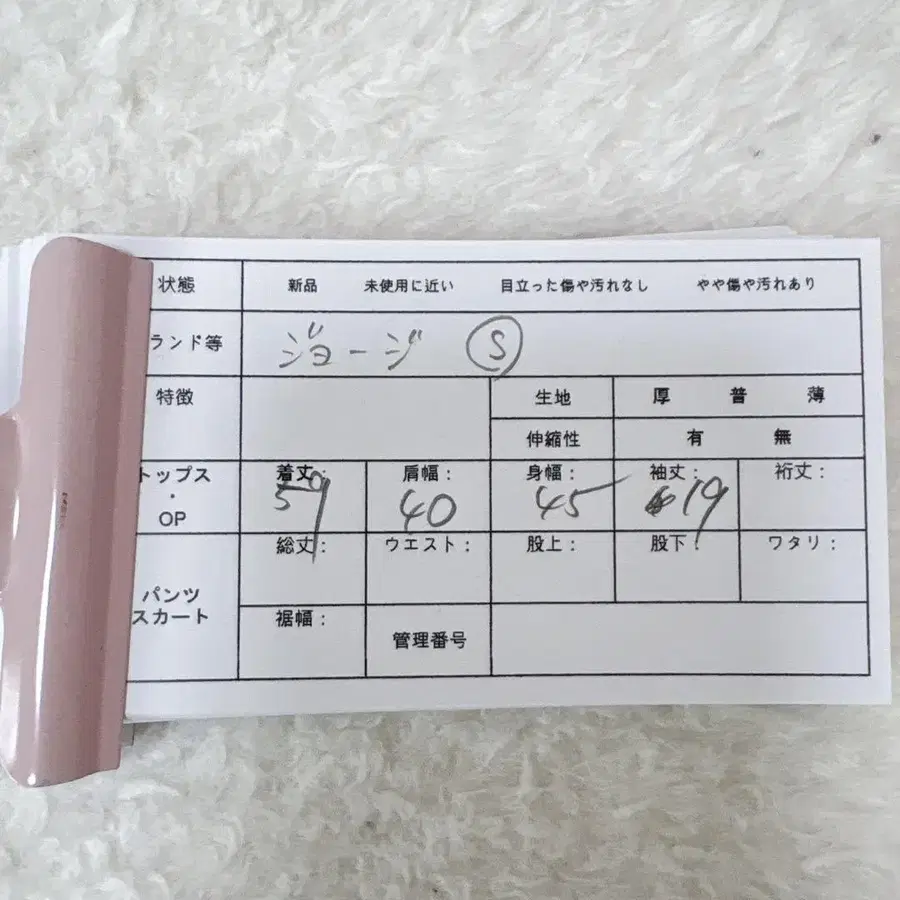 状態 新品 未使用に近い 目立った傷や汚れなし やや傷や汚れあり
ランド等 ジョージ Ⓢ
特徴 生地 厚 普 薄
伸縮性 有 無
トップス・OP 着丈: 59 肩幅: 40 身幅: 45 袖丈: 19 裄丈:
パンツ スカート 総丈: ウエスト: 股上: 股下: ワタリ:
裾幅: 管理番号